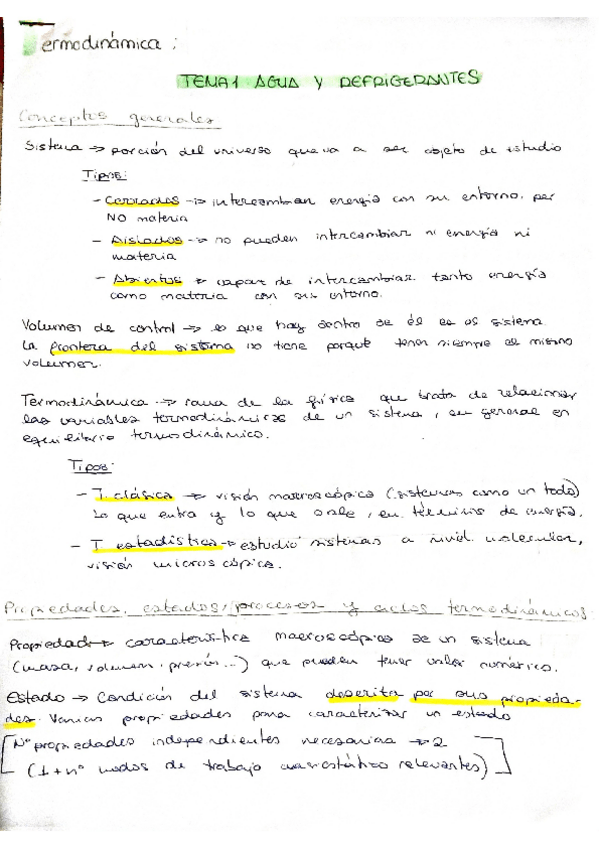 Termodinámica :
TEMA 1 AGUA Y REFRIGERANTES
Conceptos generales
Sistema → porción del universo que va a ser objeto de estudio
Tipos:
- Cerrados → intercambian energía con su entorno, per
NO materia
- Aislados → no pueden intercambiar ni energía ni
materia
- Abiertos → capaz de intercambiar tanto energía
como materia con su entorno.
Volumen de control → lo que hay dentro de él es el sistema
La frontera del sistema no tiene porque tener siempre el mismo
volumen.
Termodinámica → rama de la física que trata de relacionar
las variables termodinámicas de un sistema, en general en
equilibrio termodinámico.
Tipos:
- T. clásica → visión macroscópica (sistemas como un todo)
Lo que entra y lo que sale, en términos de energía.
- T. estadística → estudió sistemas a nivel molecular,
visión microscópica.
Propiedades, estados, procesos y ciclos termodinámicos.
Propiedad → característica macroscópica de un sistema
(masa, volumen, presión...) que pueden tener valor numérico.
Estado → Condición del sistema descrita por sus propieda-
des. Varias propiedades para caracterizar un estado
[Nº propiedades independientes necesarias → 2
(1 + nº modos de trabajo cuasiestático relevantes)]